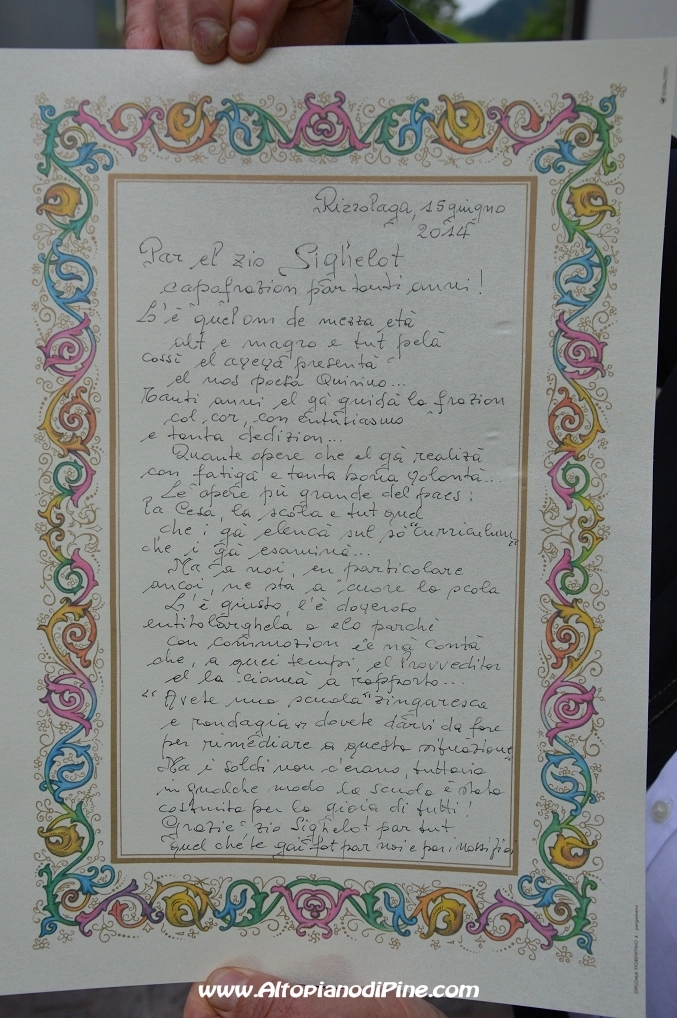 Rizzolaga, 15 giugno
2014
Par el zio Sighelot
capofrazion par tanti anni!
L'è quel om de mezza età
alt e magro e tut pelà
cossì el aveva presentà
el nos poeta Quirino...
Tanti anni el gà guidà la frazion
col cor, con entusiasmo
e tanta dedizion...
Quante opere che el gà realizà
con fatiga e tanta bona volontà...
Le opere più grande del paes:
la Cesa, la scola e tut quel
che i gà elencà sul so "curriculum"
che i gà esaminà...
Ma a noi, en particolare
ancoi, ne sta a cuore la scola
L'è giusto, l'è doveroso
entitolarghela a elo parchè
con commozion el n'à contà
che, a quei tempi, el Provveditor
el la ciamà a rapporto...
"Avete una scuola "zingaresca
e randagia" dovete darvi da fare
per rimediare a questa situazione"
Ma i soldi non c'erano, tuttavia
in qualche modo la scuola è stata
costruita per la gioia di tutti!
Grazie zio Sighelot par tut
quel che te gai fat par noi e par i nossi fioi
www.AltopianodiPine.com